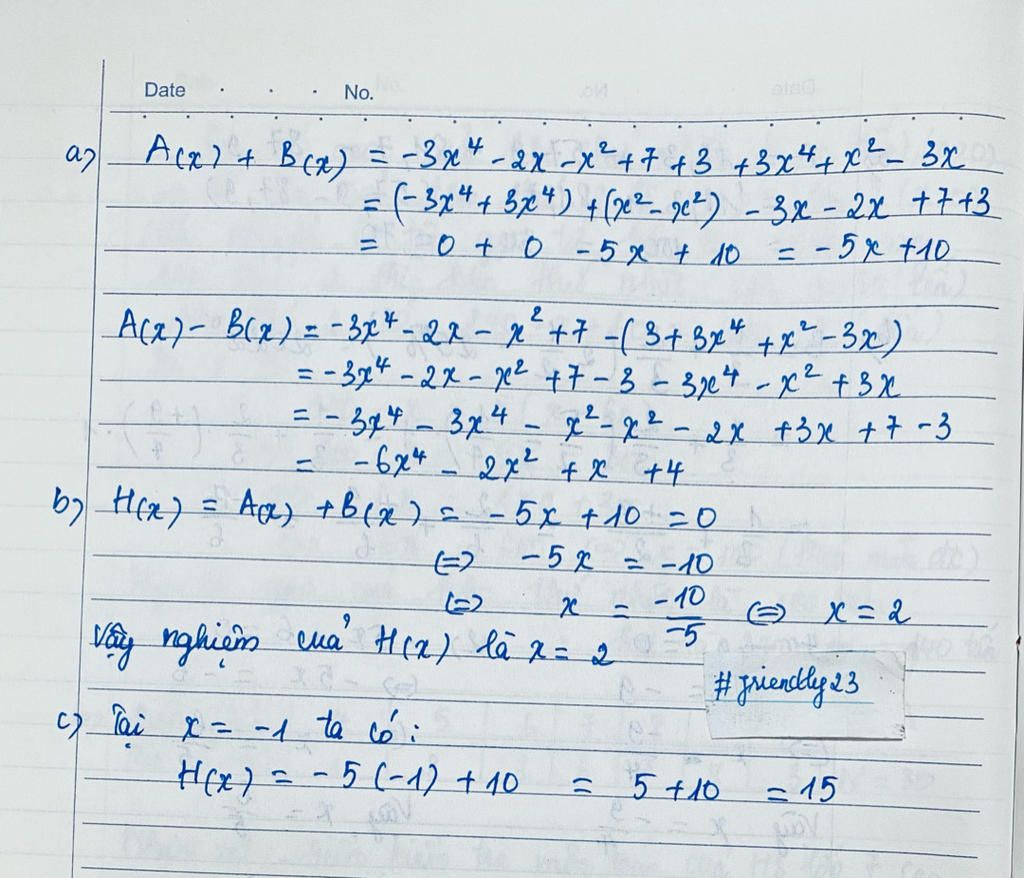 Date . . . No.
a) A(x) + B(x) = -3x⁴ - 2x - x² + 7 + 3 + 3x⁴ + x² - 3x
= (-3x⁴ + 3x⁴) + (x² - x²) - 3x - 2x + 7 + 3
= 0 + 0 - 5x + 10 = -5x + 10
A(x) - B(x) = -3x⁴ - 2x - x² + 7 - (3 + 3x⁴ + x² - 3x)
= -3x⁴ - 2x - x² + 7 - 3 - 3x⁴ - x² + 3x
= -3x⁴ - 3x⁴ - x² - x² - 2x + 3x + 7 - 3
= -6x⁴ - 2x² + x + 4
b) H(x) = A(x) + B(x) = -5x + 10 = 0
<=> -5x = -10
<=> x = -10/-5 <=> x = 2
Vậy nghiệm của H(x) là x = 2
#friendly23
c) Tại x = -1 ta có:
H(x) = -5(-1) + 10 = 5 + 10 = 15